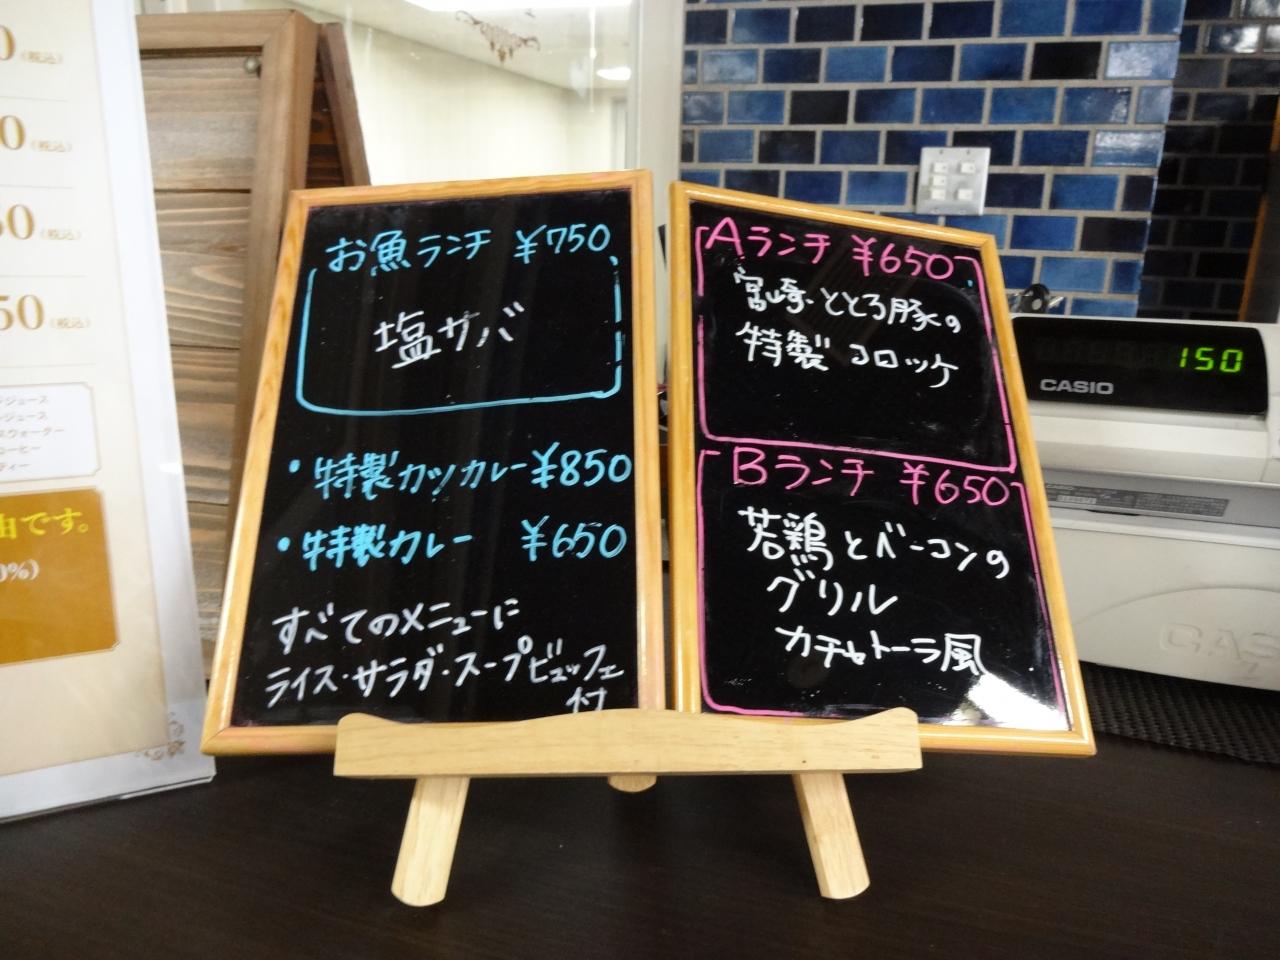 0(税込)
0(税込)
50(税込)
50(税込)
ジュース
ジュース
スウォーター
コーヒー
ティー
由です。
0%)
お魚ランチ ¥750
塩サバ
・特製カツカレー¥850
・特製カレー ¥650
すべてのメニューに
ライス・サラダ・スープビュッフェ
付
Aランチ ¥650
宮崎・ととろ豚の
特製コロッケ
Bランチ ¥650
若鶏とベーコンの
グリル
カチャトーラ風
150
CASIO
CAS